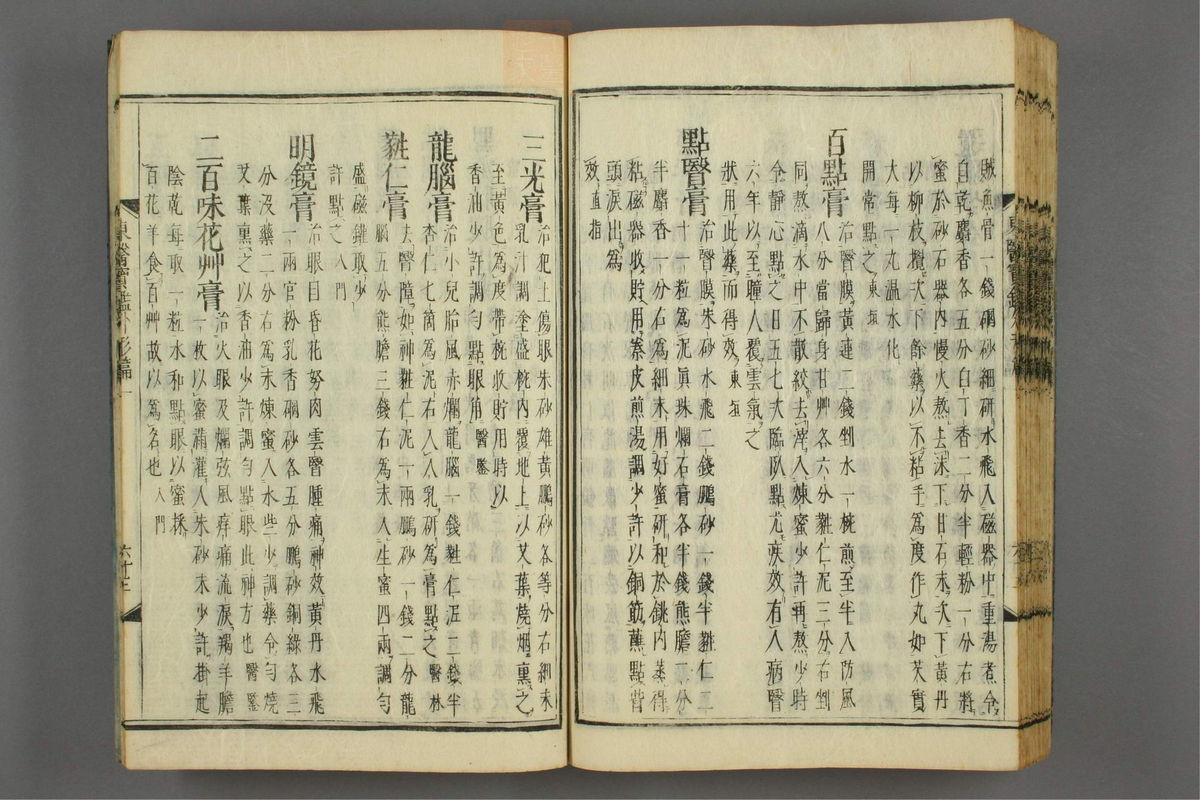 賊魚骨一錢硇砂細研水飛入磁器中重湯煮令
自乾麝香各五分白丁香二分半輕粉一分右將
蜜於砂石器內慢火熬去沫下甘石末次下黃丹
以柳枝攪次下餘藥以不粘手為度作丸如芡實
大每一丸溫水化
開常點之東垣
百點膏
治瞖膜黃連二錢剉水一椀煎至半入防風
八分當歸身甘艸各六分蕤仁泥三分右剉
同熬滴水中不散絞去滓入煉蜜少許再熬少時
令靜心點之日五七次臨臥點尤疾效有人病瞖
六年以至瞳人覆雲氣之
狀用此藥而得效東垣
點瞖膏
治瞖膜朱砂水飛二錢鵬砂一錢半蕤仁三
十一粒為泥眞珠爛石膏各半錢熊膽二分
半麝香一分右為細末用好蜜研和於銚內蒸得
粘磁器收貯用秦皮煎湯調少許以銅筯蘸點眥
頭淚出為
效直指
三光膏
治犯土傷眼朱砂雄黃鵬砂各等分右細末
乳汁調塗盛椀內覆地上以艾葉燒烟熏之
至黃色為度帶椀收貯用時以
香油少許調勻點眼角醫鑒
龍腦膏
治小兒胎風赤爛龍腦一錢蕤仁泥二錢半
杏仁七箇為泥右入人乳研為膏點之醫林
蕤仁膏
去瞖障如神蕤仁泥一兩鵬砂一錢二分龍
腦五分熊膽三錢右為末入生蜜四兩調勻
盛磁罐取少
許點之入門
明鏡膏
治眼目昏花努肉雲瞖腫痛神效黃丹水飛
一兩官粉乳香硇砂各五分鵬砂銅綠各三
分沒藥二分右為末煉蜜入水些少調藥令勻燒
艾葉熏之以香油少許調勻點眼此神方也醫鑒
二百味花艸膏
治火眼及爛弦風痒痛流淚羯羊膽
一枚以蜜滿灌入朱砂末少許掛起
陰乾每取一粒水和點眼以蜜採
百花羊食百艸故以為名也入門
東醫寶鑑外形篇一
六十七